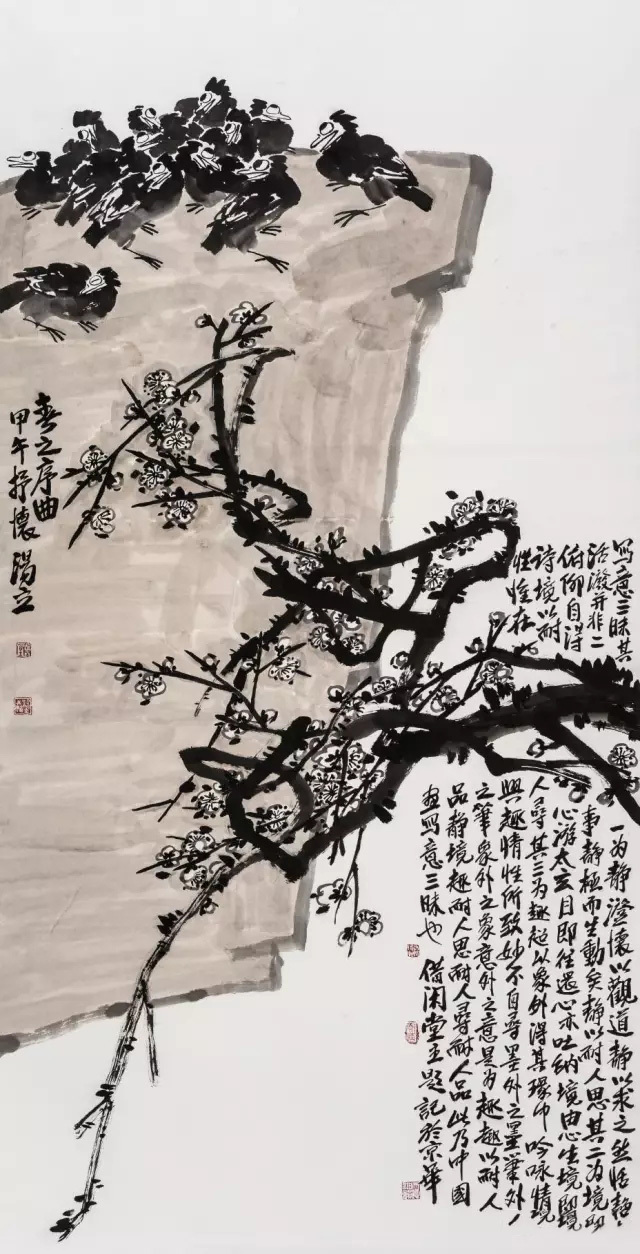 写意三昧其一为静澄懷以觀道静以求之然恬静
活潑并非二事静極而生動矣静以耐人思其二为境即
俯仰自得心游太玄目即往還心亦吐纳境由心生境即
詩境以耐人尋其三为趣趣超以象外得其環中吟咏情
性惟在興趣情性所致妙不自尋墨外之墨筆外
之筆象外之象意外之意是为趣趣以耐人
品静境趣耐人思耐人尋耐人品此乃中國
画写意三昧也 借闲堂主題記於京華
春之序曲
甲午抒懷 湯立